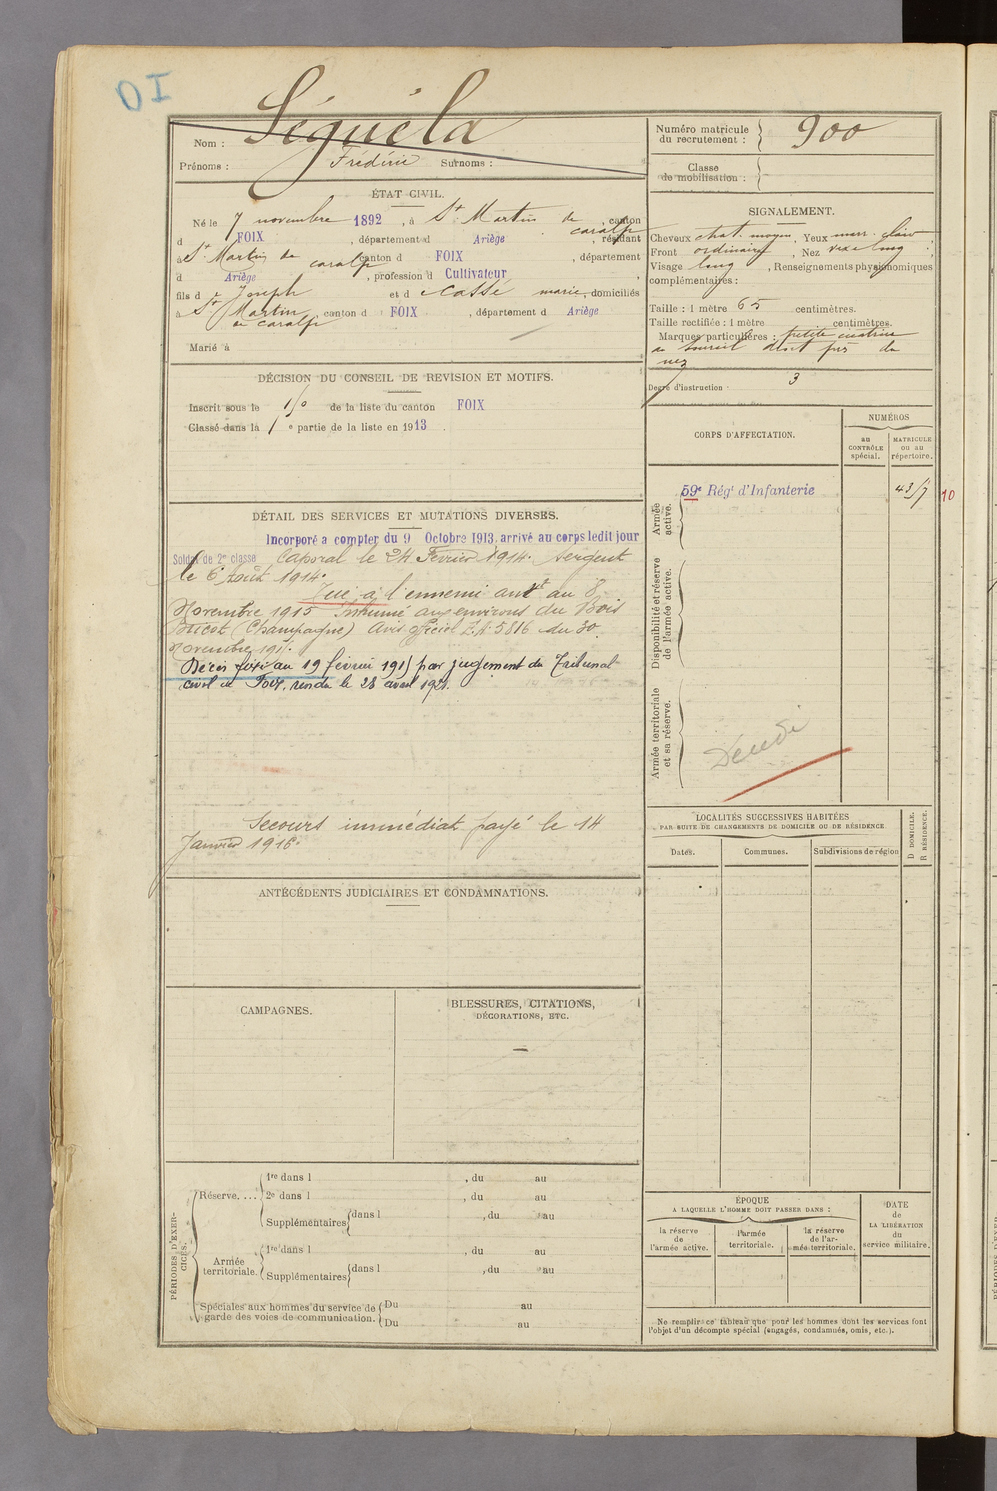 DI
Nom : Séguéla
Prénoms : Frédéric Surnoms :
Numéro matricule du recrutement : 900
Classe de mobilisation :
ÉTAT CIVIL.
Né le 7 novembre 1892, à St Martin de caralp, canton
d FOIX, département d Ariège, résidant
à St Martin de caralp canton d FOIX, département
d Ariège, profession d Cultivateur,
fils d e Joseph et d e marie, domiciliés
à St Martin de caralp, canton d FOIX, département d Ariège
Marié à
SIGNALEMENT.
Cheveux chat. moyen, Yeux marr. clair
Front ordinaire, Nez long ;
Visage long, Renseignements physionomiques
complémentaires :
Taille : 1 mètre 65 centimètres.
Taille rectifiée : 1 mètre centimètres.
Marques particulières : petite cicatrice
au sourcil droit près du
nez
Degré d'instruction : 3
DÉCISION DU CONSEIL DE REVISION ET MOTIFS.
Inscrit sous le de la liste du canton FOIX
Classé dans la 1e partie de la liste en 1913.
DÉTAIL DES SERVICES ET MUTATIONS DIVERSES.
Incorporé a compter du 9 Octobre 1913. arrivé au corps ledit jour
Soldat de 2e classe Caporal le 24 Février 1914. Sergent
le 6 Août 1914.
Tué à l'ennemi antt au 8
Novembre 1915 Inhumé aux environs du Bois
(Champagne) Avis officiel 5816 du 30
Novembre 1915.
Décès fixé au 19 février 1915 par jugement du Tribunal
civil de Foix, rendu le 28 avril 1921.
Secours immédiat payé le 14
Janvier 1916.
CORPS D'AFFECTATION.
NUMÉROS
au CONTRÔLE spécial.
MATRICULE ou au répertoire.
Armée active.
59e Régt d'Infanterie
10
Disponibilité et réserve de l'armée active.
Armée territoriale et sa réserve.
ANTÉCÉDENTS JUDICIAIRES ET CONDAMNATIONS.
LOCALITÉS SUCCESSIVES HABITÉES
PAR SUITE DE CHANGEMENTS DE DOMICILE OU DE RÉSIDENCE
Dates.
Communes.
Subdivisions de région
D DOMICILE.
R RÉSIDENCE.
CAMPAGNES.
BLESSURES, CITATIONS,
DÉCORATIONS, ETC.
PÉRIODES D'EXERCICES.
Réserve....
1re dans l , du au
2e dans l , du au
Supplémentaires dans l , du au
Armée territoriale.
1re dans l , du au
Supplémentaires dans l , du au
Spéciales aux hommes du service de garde des voies de communication.
Du au
Du au
ÉPOQUE
A LAQUELLE L'HOMME DOIT PASSER DANS :
la réserve de l'armée active.
l'armée territoriale.
la réserve de l'armée territoriale.
DATE de LA LIBÉRATION du service militaire.
Ne remplir ce tableau que pour les hommes dont les services font
l'objet d'un décompte spécial (engagés, condamnés, omis, etc.).